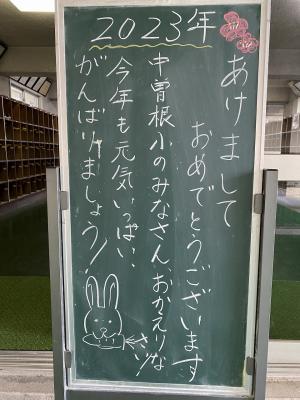 2023年
あけまして
おめでとうございます
中曽根小のみなさん、おかえりなさい♪
今年も元気いっぱい、
がんばりましょう!